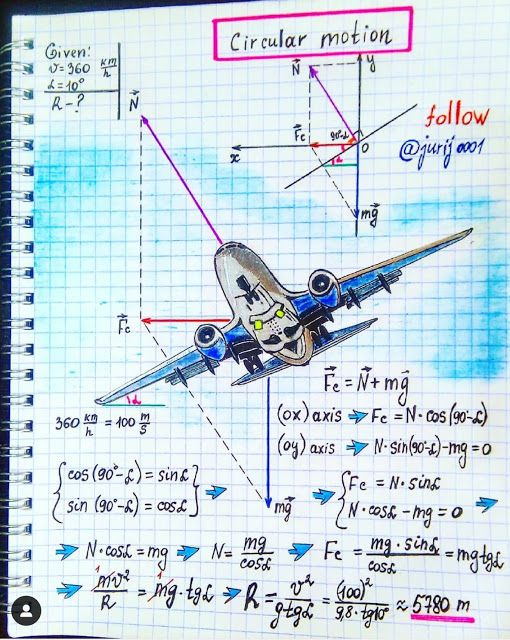 Circular motion
Given:
v=360 km/h
α=10°
R-?
N⃗
N⃗
y
F⃗c
90°-α
α
O
x
mg⃗
follow
@jurij0001
F⃗c
α
360 km/h = 100 m/s
mg⃗
F⃗c = N⃗ + mg⃗
(ox) axis ➩ Fc = N·cos(90-α)
(oy) axis ➩ N·sin(90°-α)-mg=0
{cos(90°-α)=sinα
sin(90°-α)=cosα} ➩
➩ {Fc = N·sinα
N·cosα-mg=0 ➩
➩ N·cosα=mg ➩ N= mg/cosα ➩ Fc = mg·sinα/cosα = mgtgα
➩ mv²/R = mg·tgα ➩ R= v²/gtgα = (100)²/9,8·tg10° ≈ 5780 m